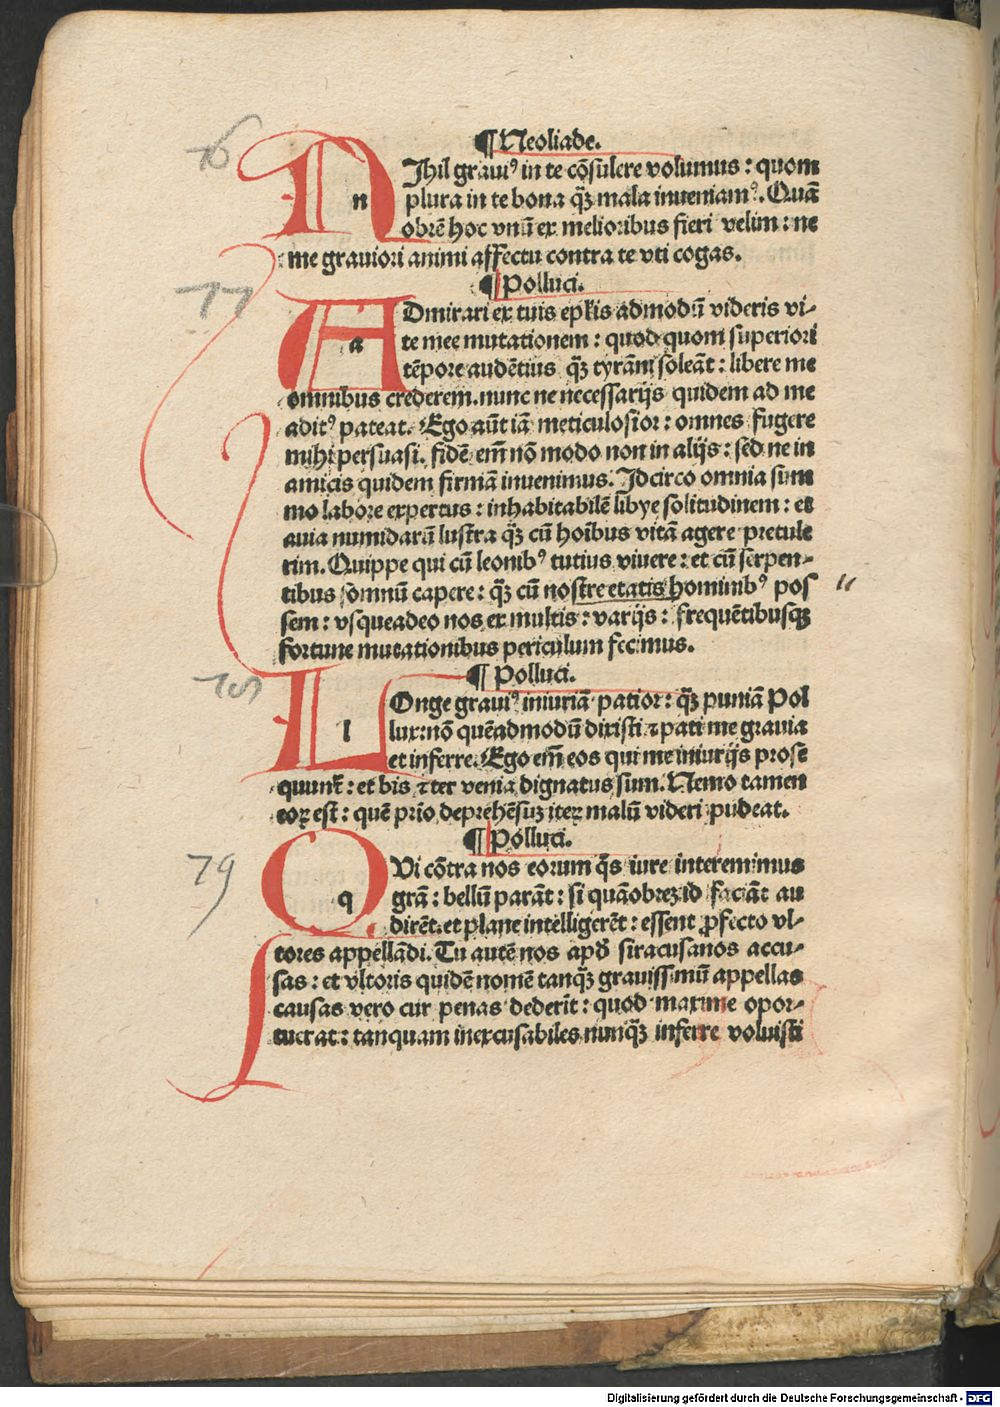 76
¶ Neoliade.
NJhil graui⁹ in te cōsulere volumus : quom
n plura in te bona q̄ꝫ mala inueniam⁹. Quā
obrē hoc vnū ex melioribus fieri velim : ne
me grauiori animi affectu contra te vti cogas.
77
¶ Polluci.
ADmirari ex tuis ep̄lis admodū videris vi-
a te mee mutationem : quod quom superiori
tēpore audētius q̄ꝫ tyrāni soleāt : libere me
omnibus crederem. nunc ne necessarijs quidem ad me
adit⁹ pateat. Ego aūt iā meticulosior : omnes fugere
mihi persuasi. fidē em̄ nō modo non in alijs : sed ne in
amicis quidem firmā inuenimus. Jdcirco omnia sum
mo labore expertus : inhabitabilē libye solitudinem : et
auia numidarū lustra q̄ꝫ cū hoībus vitā agere pretule
rim. Quippe qui cū leonib⁹ tutius viuere : et cū serpen-
tibus somnū capere : q̄ꝫ cū nostre etatis hominib⁹ pos "
sem : vsqueadeo nos ex multis : varijs : frequētibusqꝫ
fortune mutationibus periculum fecimus.
78
¶ Polluci.
LOnge graui⁹ iniuriā patior : q̄ꝫ puniā Pol
l lux: nō quēadmodū dixisti ⁊ pati me grauia
et inferre. Ego em̄ eos qui me iniurijs prose
quunt᷑ : et bis ⁊ ter venia dignatus sum. Nemo tamen
eoꝝ est : quē prio deprehēsuꝫ iteꝝ malū videri pudeat.
¶ Polluci.
79
QVi cōtra nos eorum q̄s iure interemimus
q grā : bellū parāt : si quāobreꝫ id faciāt au
dirēt. et plane intelligerēt : essent ꝓfecto vl-
tores appellādi. Tu autē nos apd̄ siracusanos accu-
sas : et vltoris quidē nomē tanq̄ꝫ grauissimū appellas
causas vero cur penas dederīt : quod maxime opor-
tuerat : tanquam inexcusabiles nunq̄ꝫ inferre voluisti
Digitalisierung gefördert durch die Deutsche Forschungsgemeinschaft - DFG